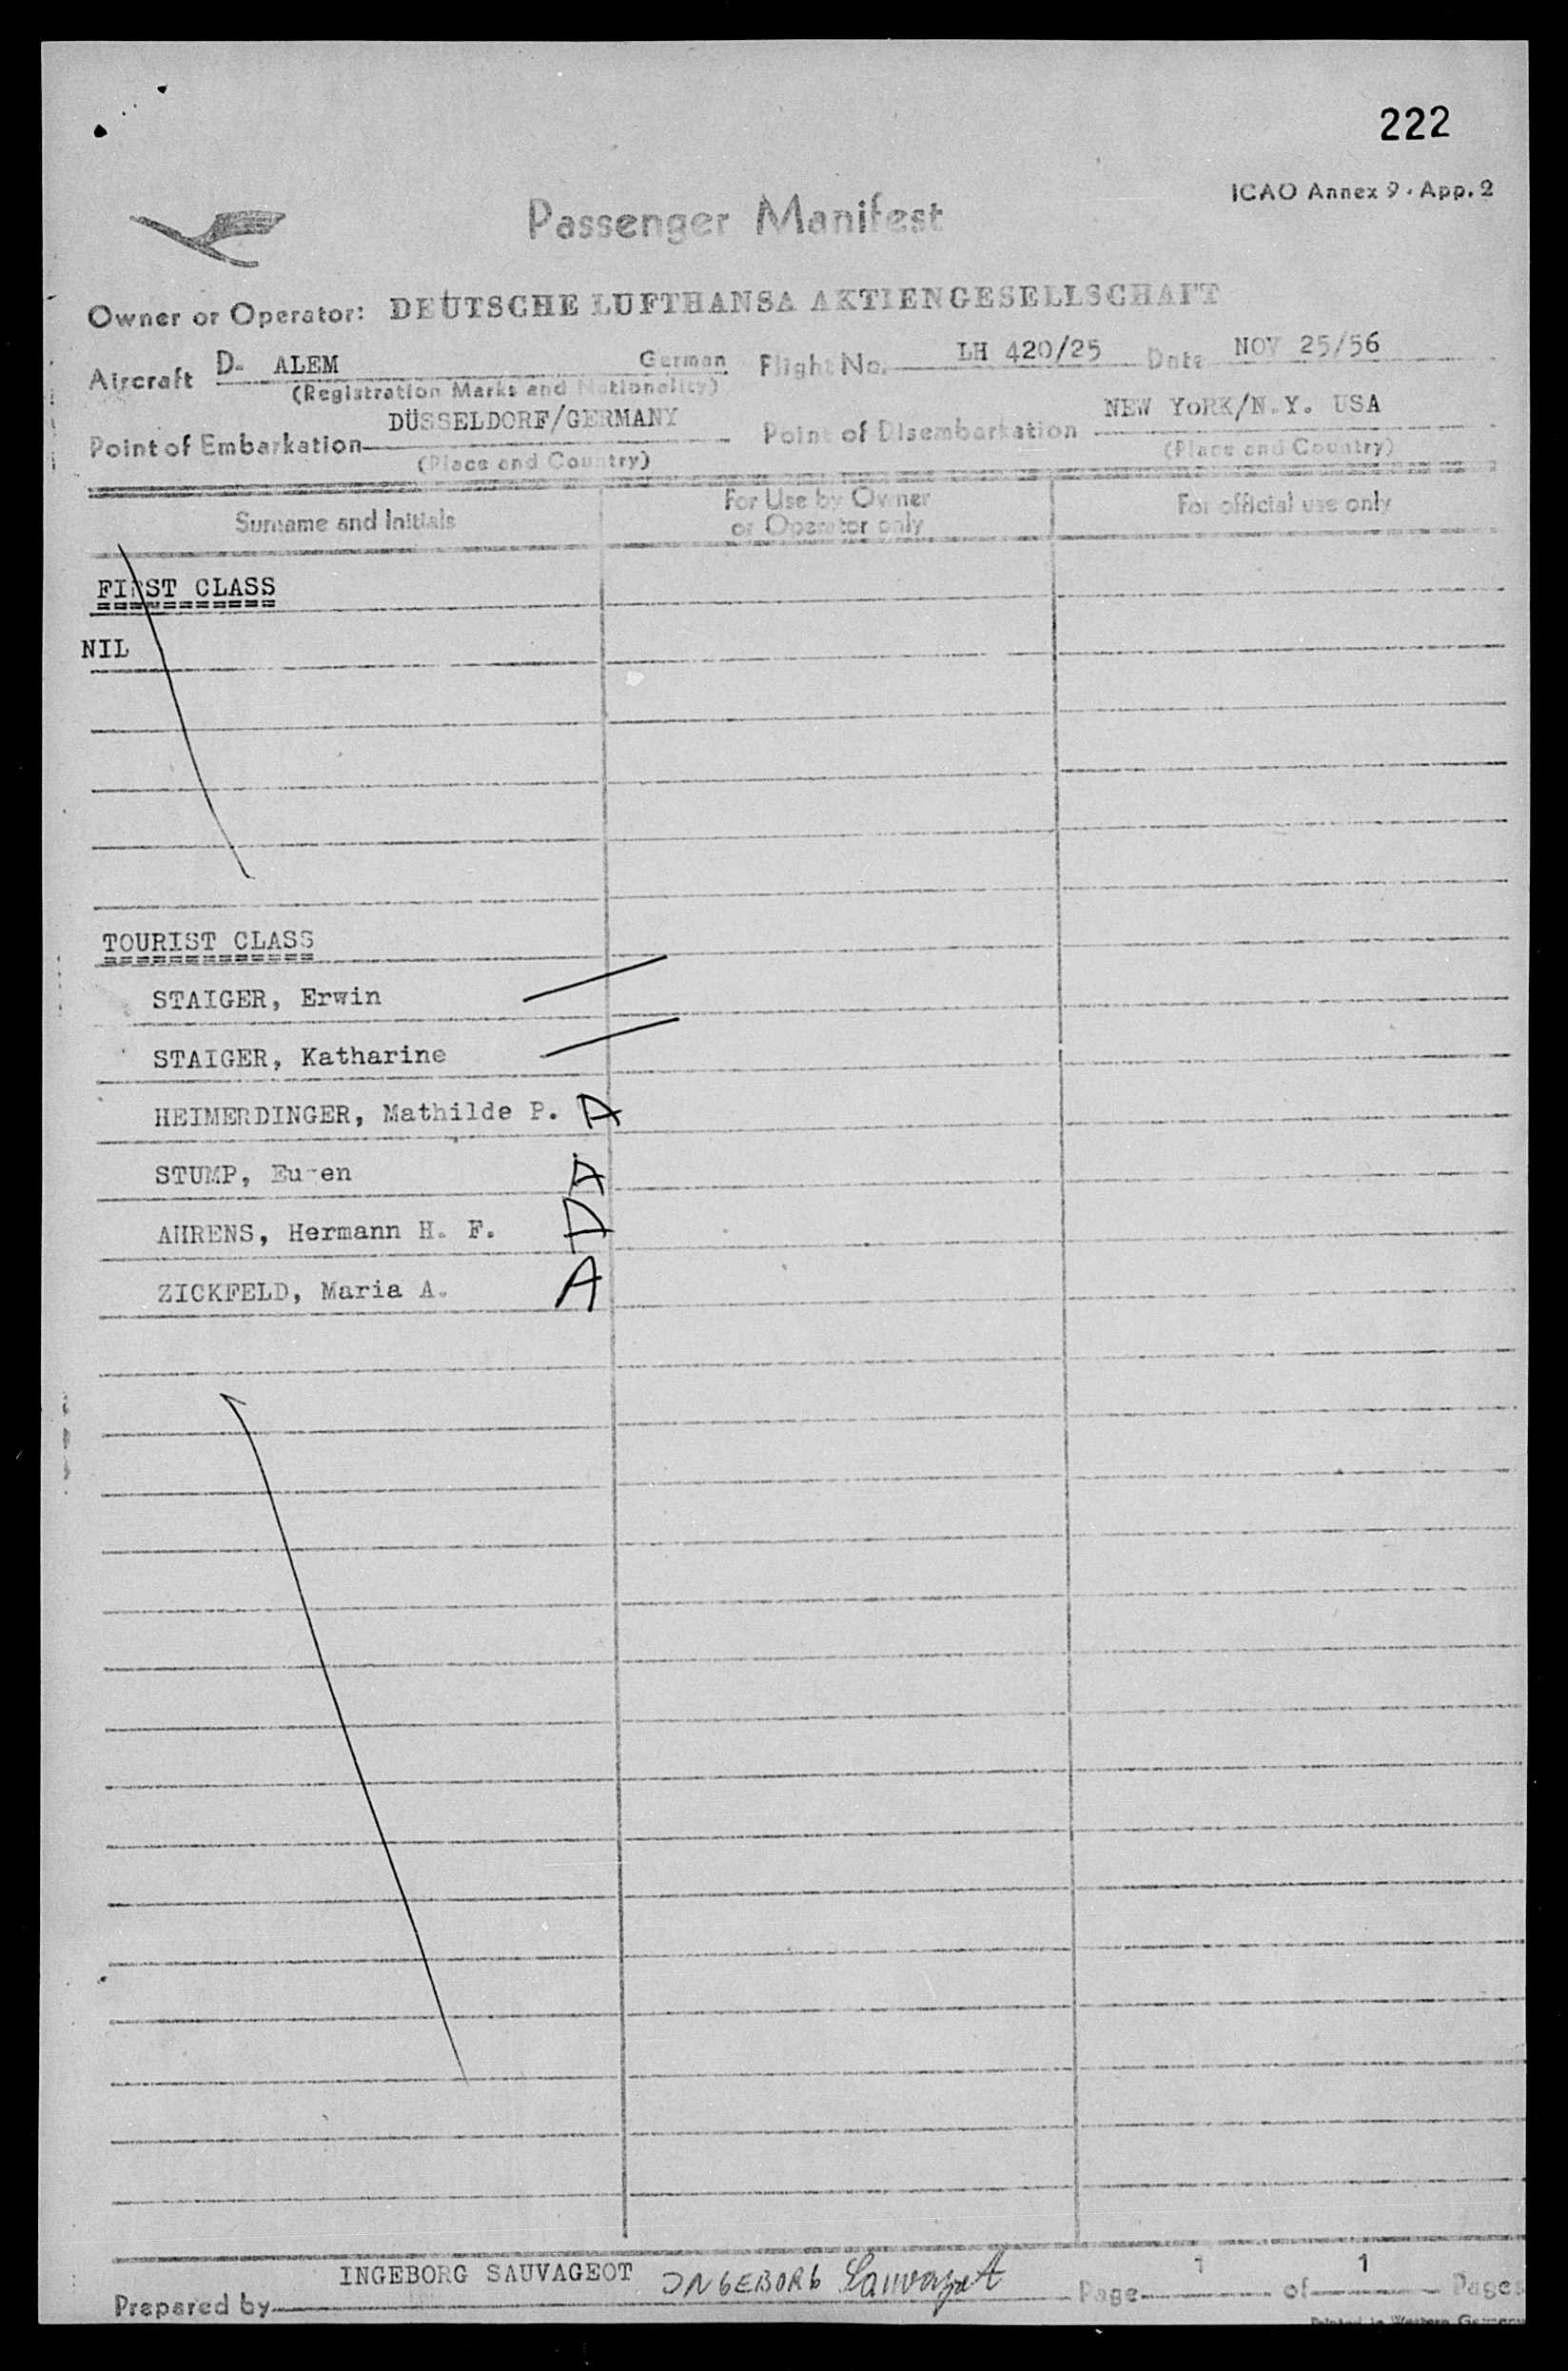 222
ICAO Annex 9 · App. 2
Passenger Manifest
Owner or Operator: DEUTSCHE LUFTHANSA AKTIENGESELLSCHAFT
Aircraft D- ALEM German Flight No. LH 420/25 Date NOV 25/56
(Registration Marks and Nationality)
Point of Embarkation DÜSSELDORF/GERMANY Point of Disembarkation NEW YoRK/N.Y. USA
(Place and Country) (Place and Country)
Surname and Initials For Use by Owner or Operator only For official use only
FIRST CLASS
NIL
TOURIST CLASS
STAIGER, Erwin
STAIGER, Katharine
HEIMERDINGER, Mathilde P. A
STUMP, Eu en A
AHRENS, Hermann H. F. A
ZICKFELD, Maria A. A
Prepared by INGEBORG SAUVAGEOT INGEBORG Sauvageot Page 1 of 1 Pages
Printed in Western Germany